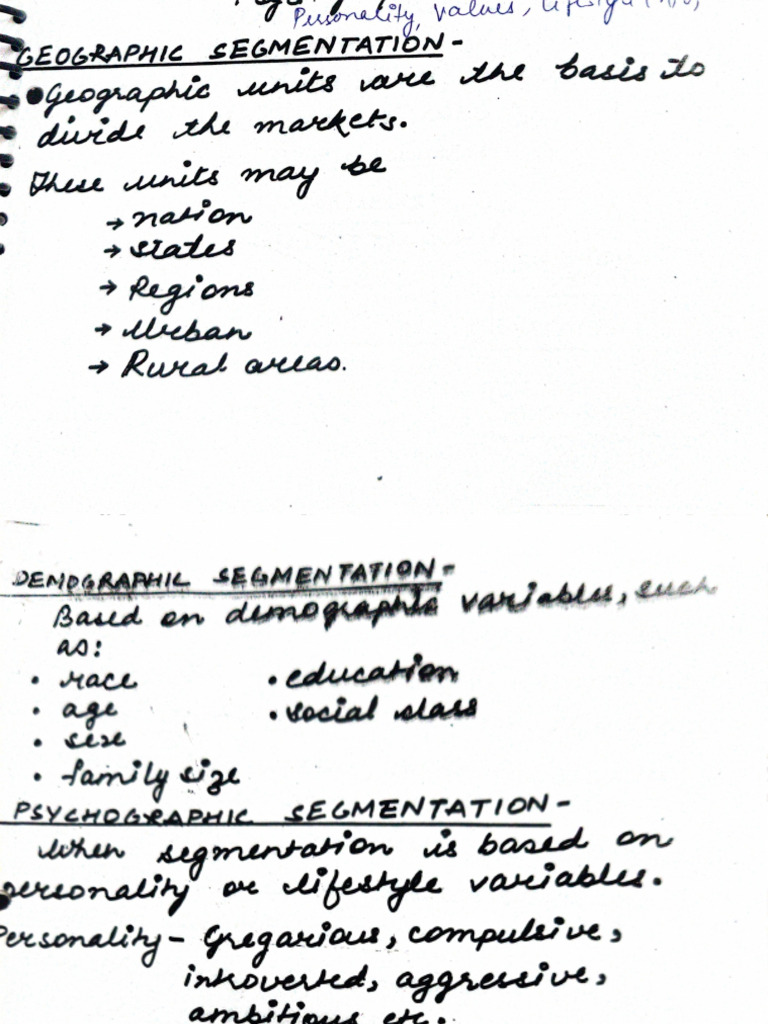 Personality, values,
GEOGRAPHIC SEGMENTATION -
• Geographic units are the basis to
divide the markets.
These units may be
→ nation
→ States
→ Regions
→ Urban
→ Rural areas.
DEMOGRAPHIC SEGMENTATION -
Based on demographic variables, such
as:
• race • education
• age • social class
• sex
• family size
PSYCHOGRAPHIC SEGMENTATION -
When segmentation is based on
personality or lifestyle variables.
Personality - Gregarious, compulsive,
introverted, aggressive,
ambitious etc.